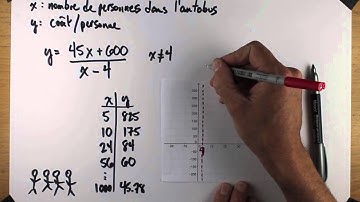 x : nombre de personnes dans l'autobus
y : coût/personne
y = 45x+600 / x-4
x≠4
x y
5 825
10 175
24 84
56 60
⋮
1000 45.78
4